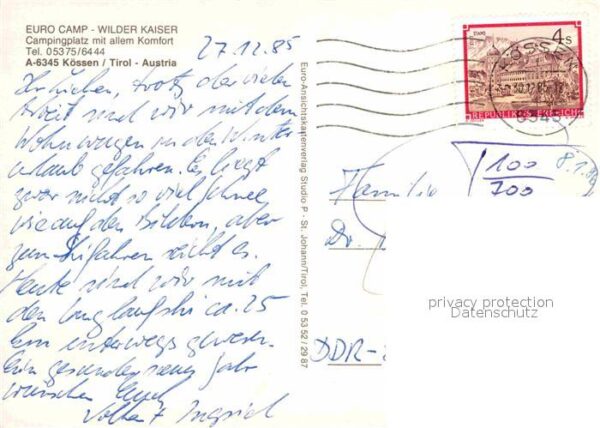 EURO CAMP - WILDER KAISER
Campingplatz mit allem Komfort
Tel. 05375/6444
A-6345 Kössen / Tirol - Austria
27.12.85
Ihr Lieben, trotz der vielen
Arbeit sind wir mit dem
Wohnwagen in den Winter-
urlaub gefahren. Es liegt
zwar nicht so viel Schnee
wie auf den Bildern, aber
zum Skifahren reicht es.
Heute sind wir mit
den Langlaufski ca. 25
km unterwegs gewesen.
Ein gesundes neues Jahr
wünschen Euch
Volker + Ingrid
Euro-Ansichtskartenverlag Studio P - St. Johann/Tirol, Tel. 0 53 52 / 29 87
4 S
STIFT
REPUBLIK ÖSTERREICH
KÖSSEN
30.12.85
6345
100
700
8.1.86
Familie
Dr.
DDR-
privacy protection
Datenschutz